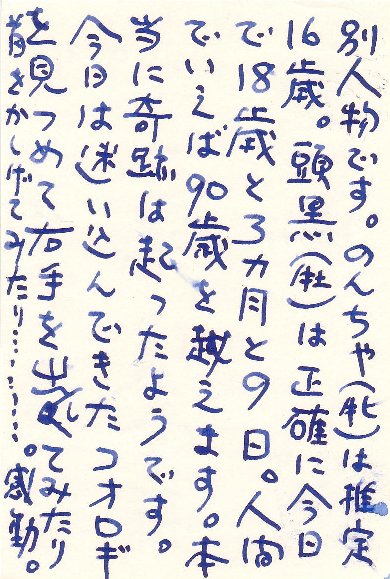 別人物です。のんちゃ(牝)は推定
16歳。頭黒(牡)は正確に今日
で18歳と3カ月と9日。人間
でいえば90歳を越えます。本
当に奇跡は起ったようです。
今日は迷い込んできたコオロギ
を見つめて右手を出してみたり
首をかしげてみたり………。感動。